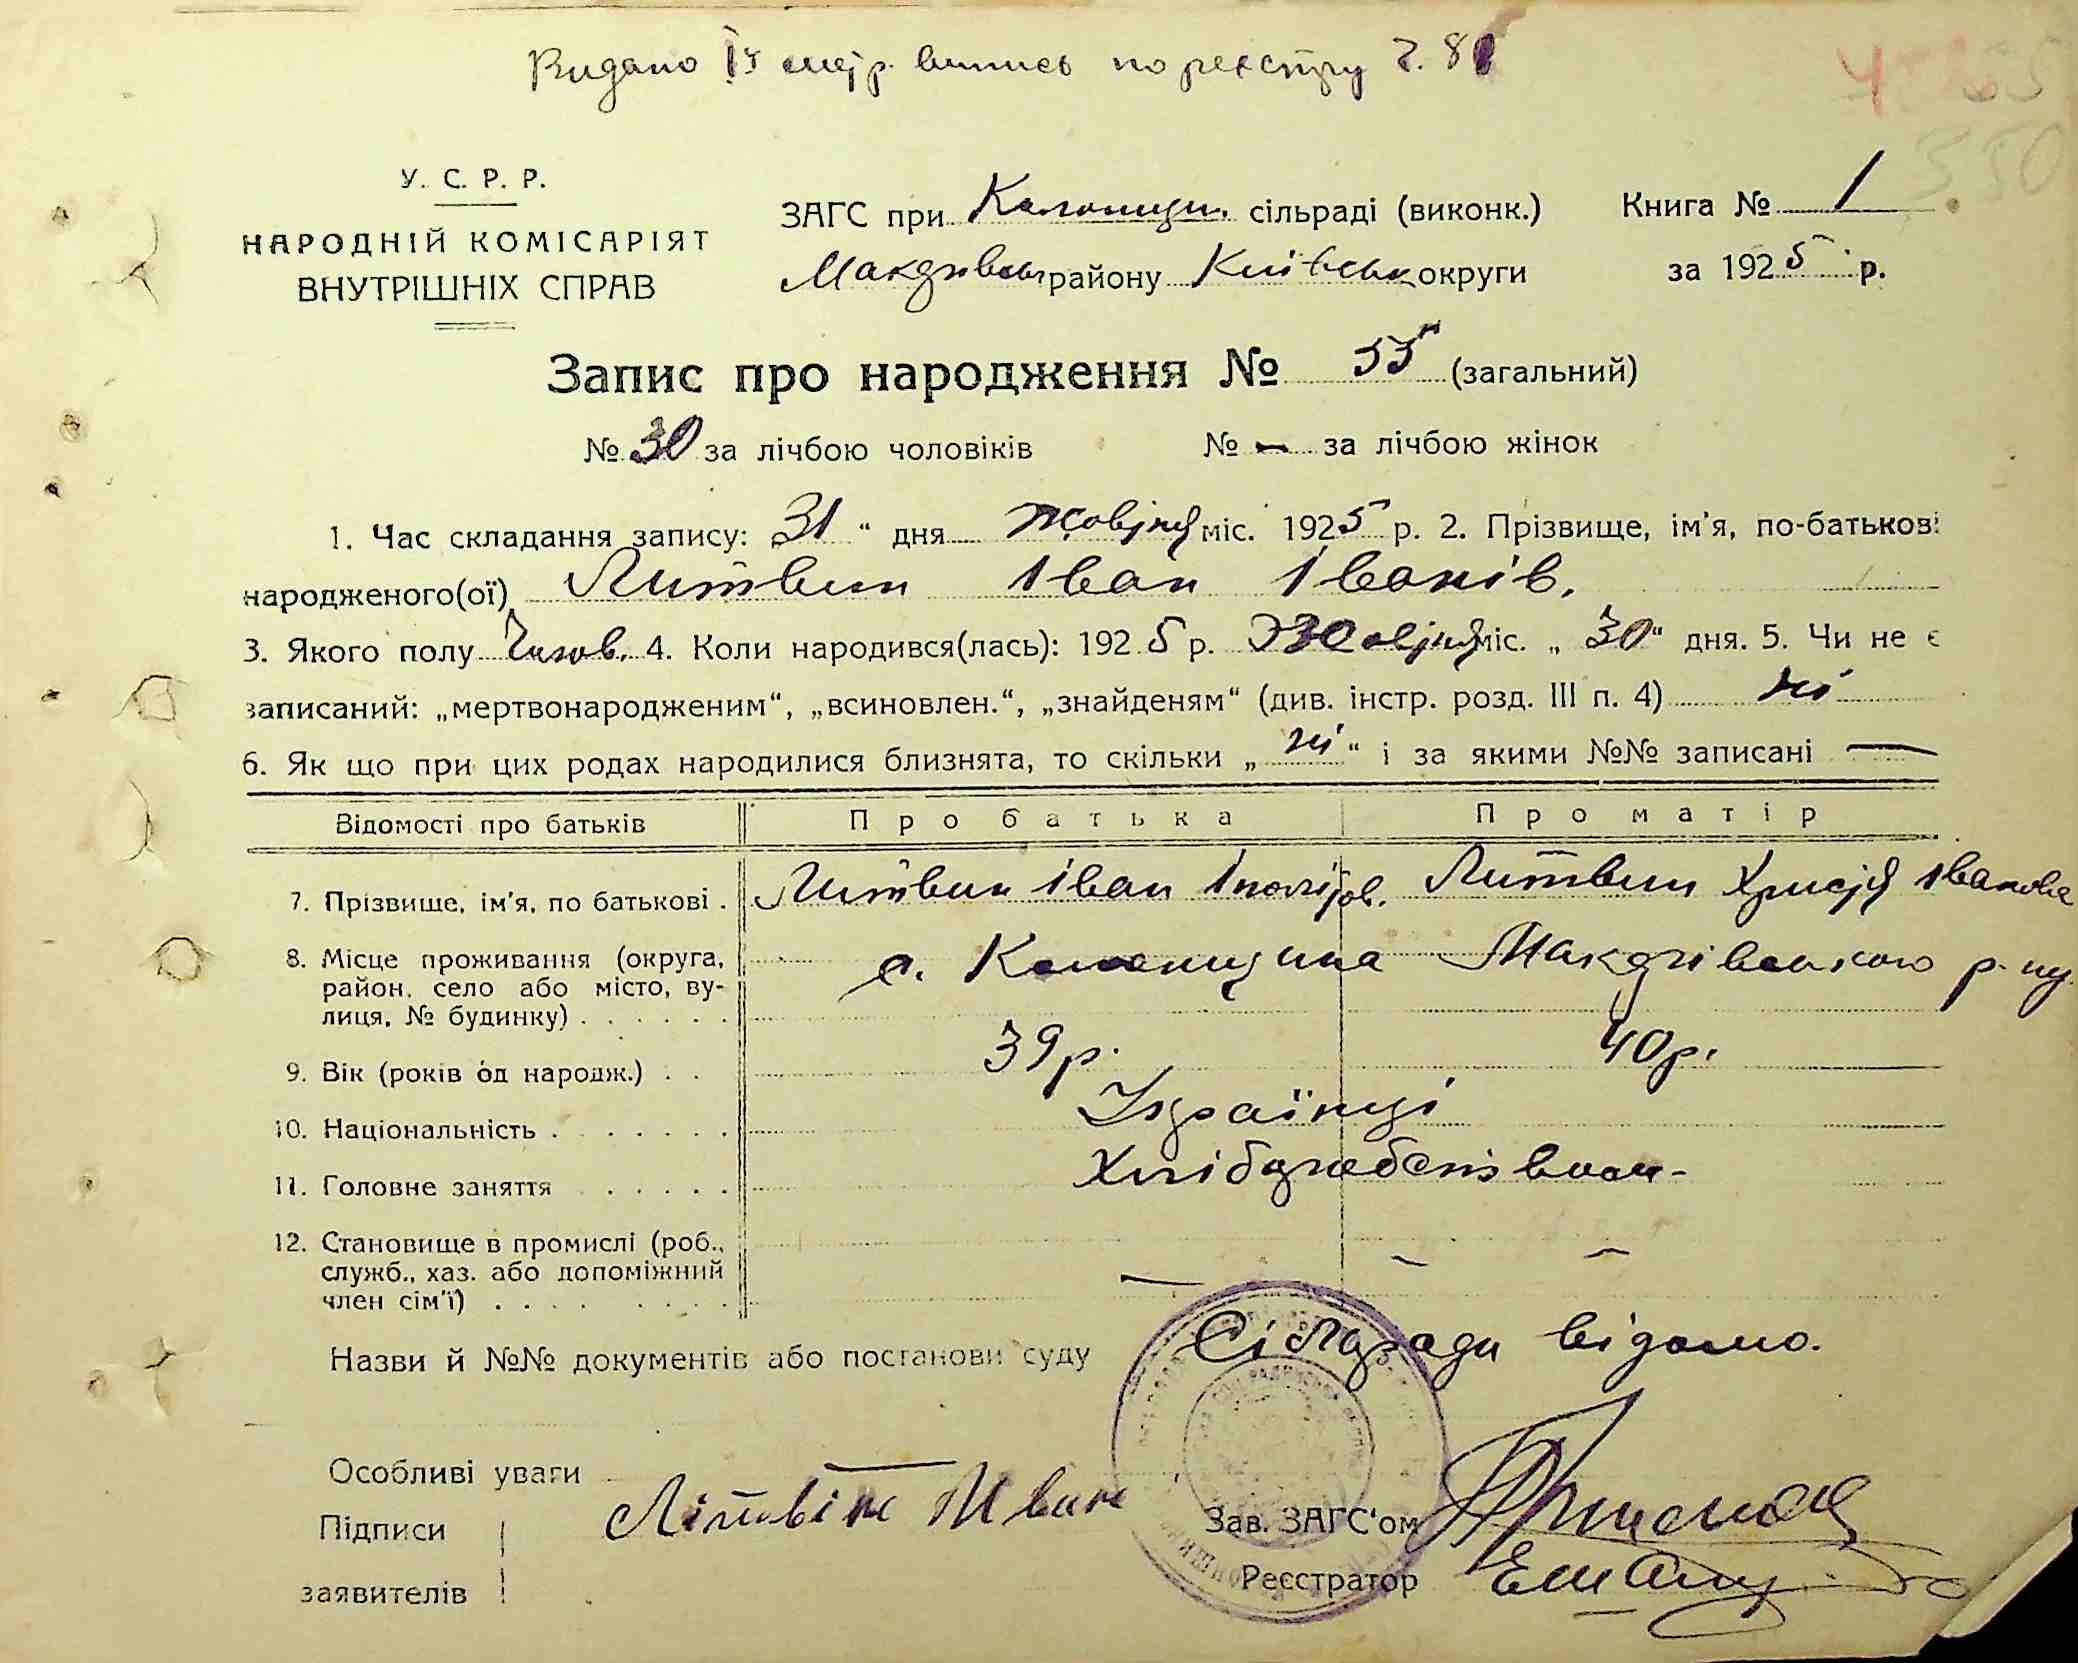 Видано метр. випись по реєстру
У. С. Р. Р.
НАРОДНІЙ КОМІСАРІЯТ
ВНУТРІШНІХ СПРАВ
ЗАГС при Колонщи. сільраді (виконк.) Книга № 1
Макарівськ району Київськ округи за 1925 р.
Запис про народження № 55 (загальний)
№ 30 за лічбою чоловіків № — за лічбою жінок
1. Час складання запису: 31 " дня Жовтня міс. 1925 р. 2. Прізвище, ім'я, по-батькові
народженого(ої) Литвин Іван Іванів.
3. Якого полу Чолов. 4. Коли народився(лась): 1925 р. Жовтня міс. „ 30 " дня. 5. Чи не є
записаний: „мертвонародженим“, „всиновлен.“, „знайденям“ (див. інстр. розд. III п. 4) ні
6. Як що при цих родах народилися близнята, то скільки „ ні “ і за якими №№ записані —
Відомості про батьків Про батька Про матір
7. Прізвище, ім'я, по батькові . Литвин Іван Іполітов. Литвин Христя Іванова
8. Місце проживання (округа, район, село або місто, вулиця, № будинку) . . . . . . с. Колонщина Макарівського р-ну
9. Вік (років од народж.) . . 39 р. 40 р.
10. Національність . . . . . . . Українці
11. Головне заняття . . . . . Хліборобством-
12. Становище в промислі (роб.,
служб., хаз. або допоміжний
член сім'ї) . . . . . . . . — — —
Назви й №№ документів або постанови суду Сільради відомо.
Особливі уваги —
Підписи Літвін Иван Зав. ЗАГС'ом
заявителів Реєстратор